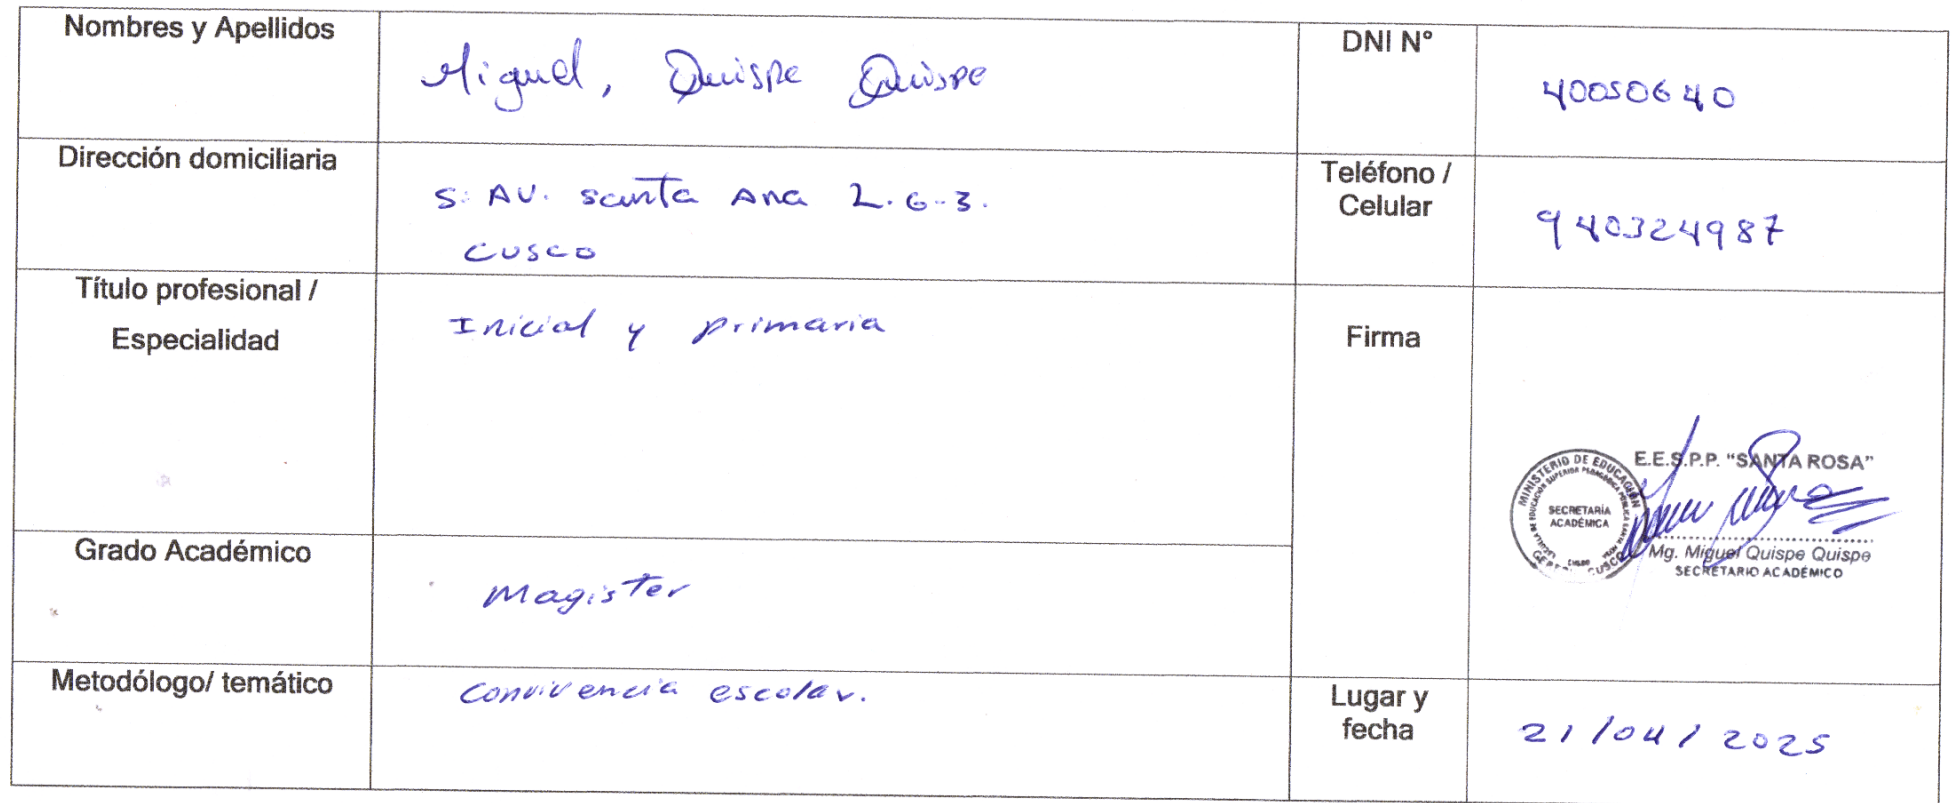 Nombres y Apellidos
Miguel, Quispe Quispe
DNI N°
40050640
Dirección domiciliaria
S. AV. santa Ana L. G-3.
CUSCO
Teléfono /
Celular
940324987
Título profesional /
Especialidad
Inicial y primaria
Firma
MINISTERIO DE EDUCACIÓN
SECRETARÍA
ACADÉMICA
CUSCO
E.E.S.P.P. "SANTA ROSA"
Mg. Miguel Quispe Quispe
SECRETARIO ACADÉMICO
Grado Académico
Magister
Metodólogo/ temático
Convivencia escolar.
Lugar y
fecha
21/04/2025